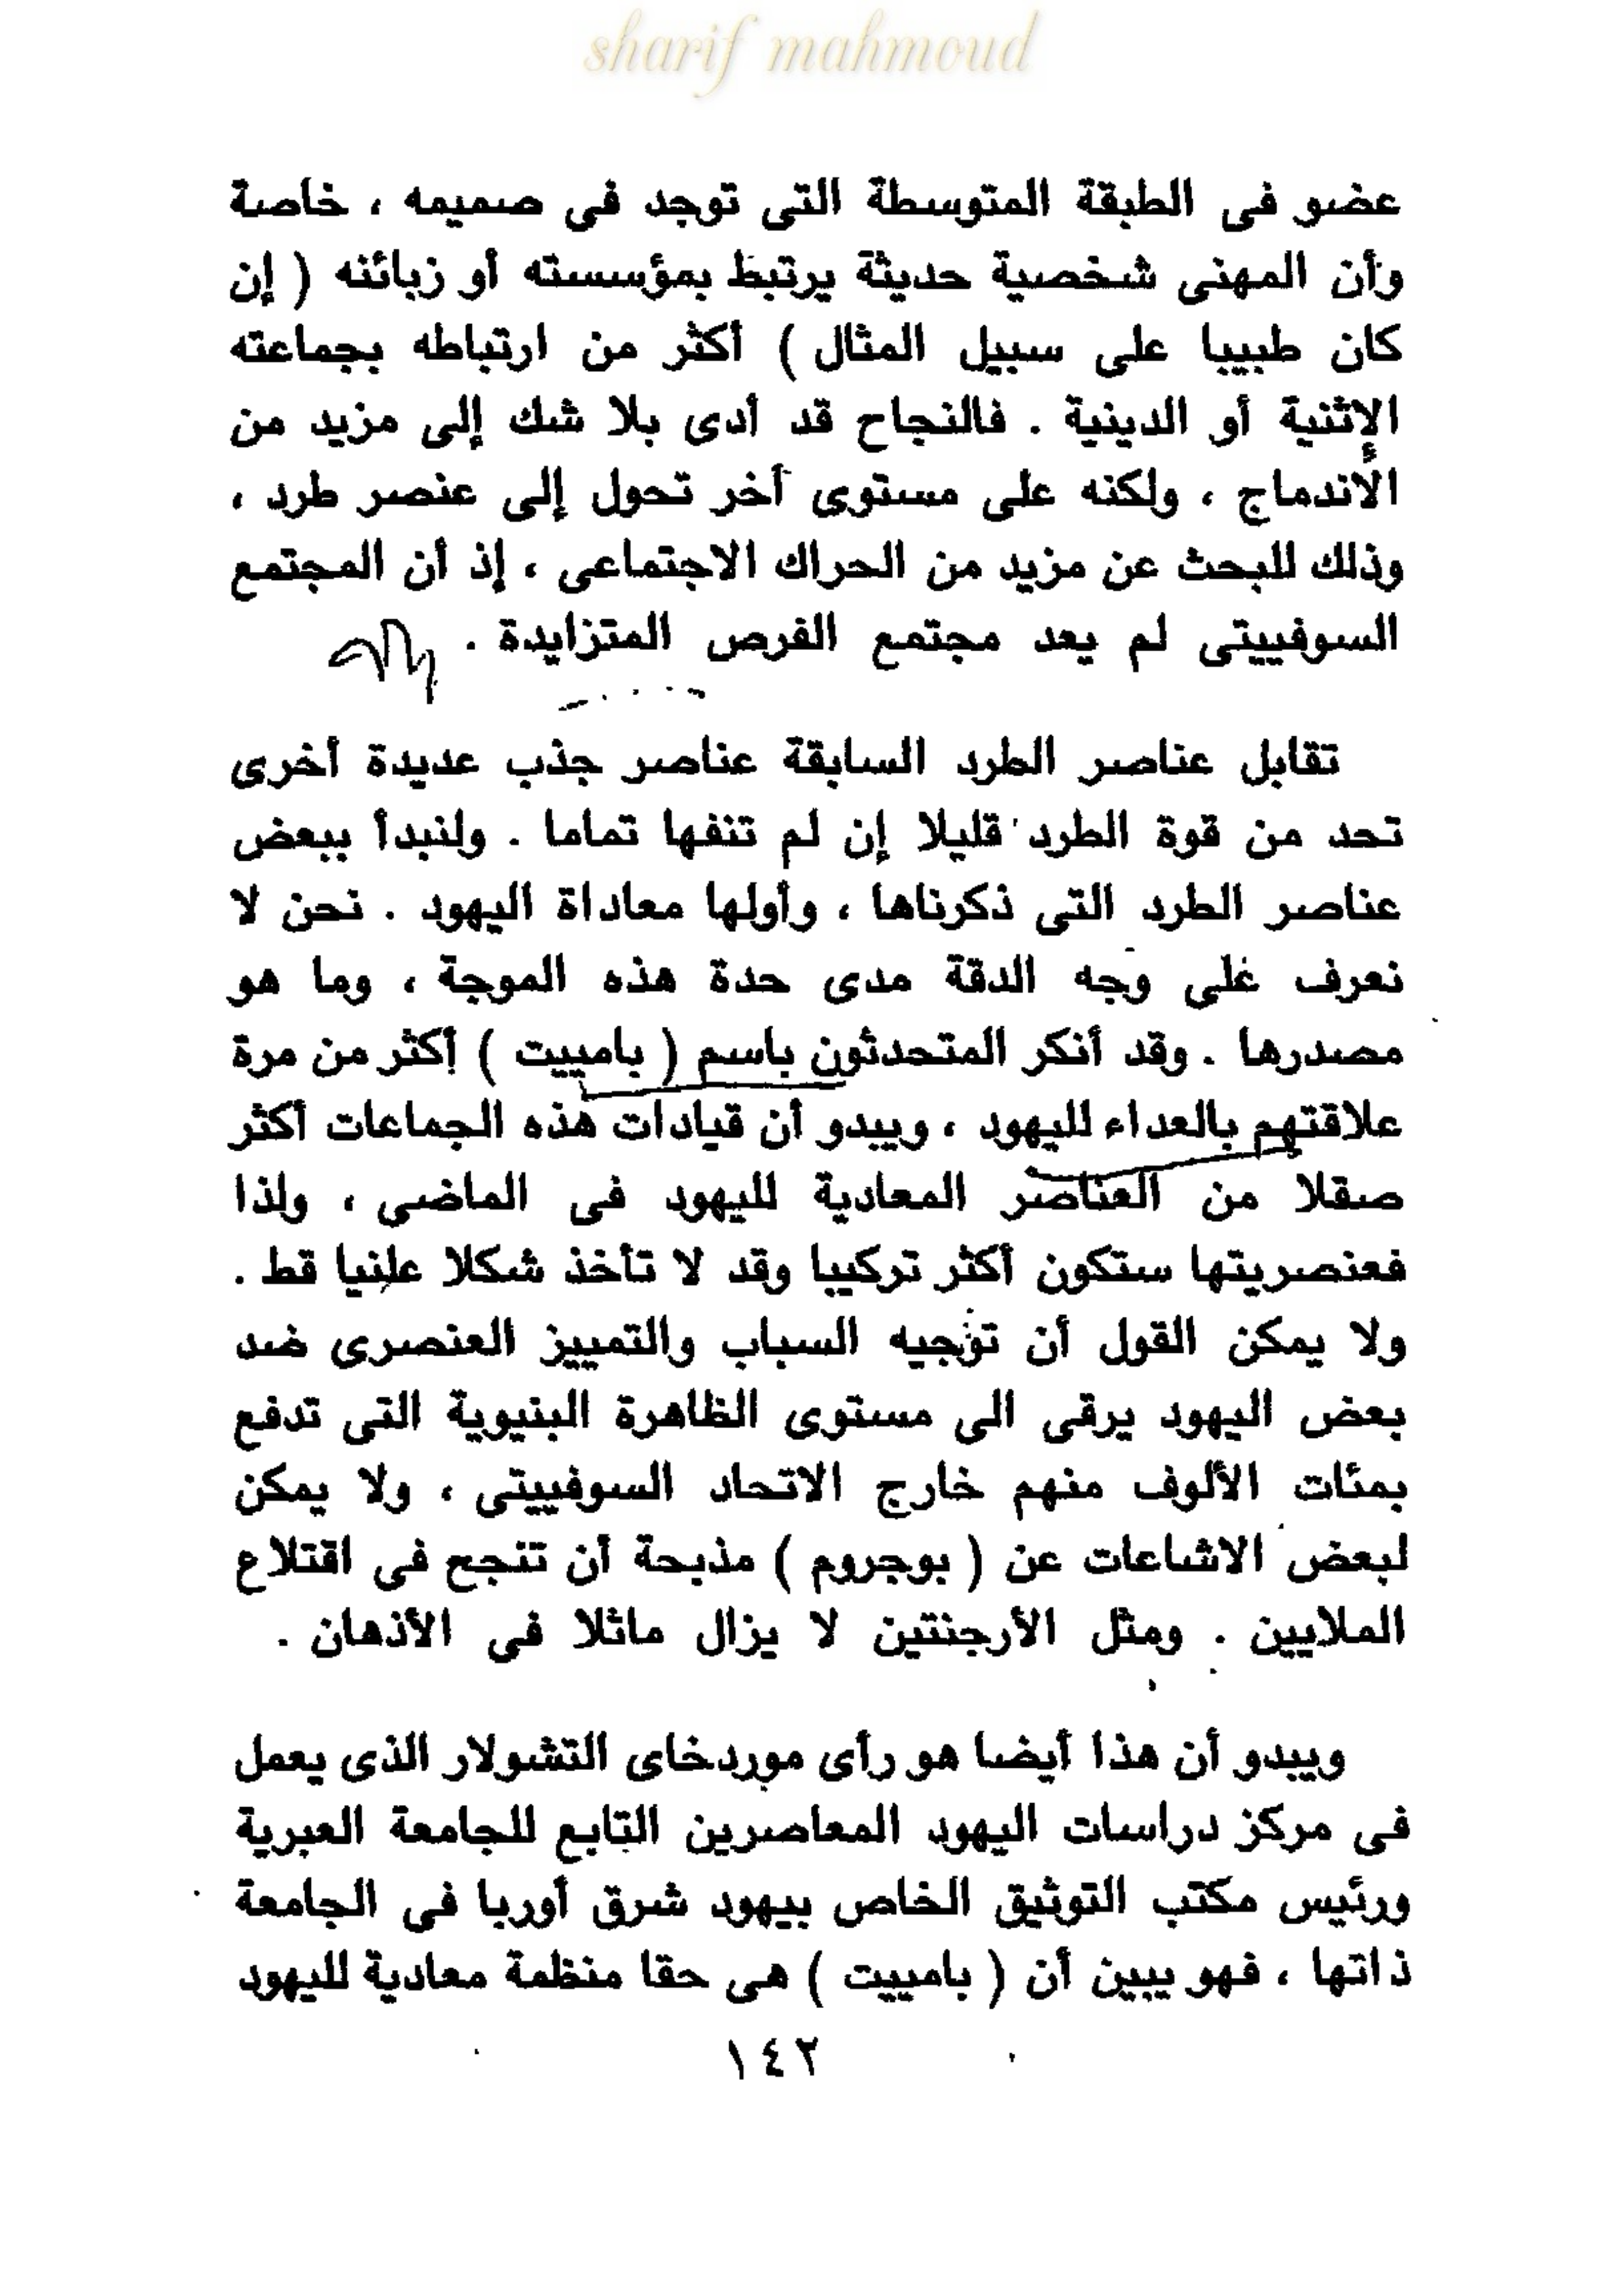 sharif mahmoud
عضو فى الطبقة المتوسطة التى توجد فى صميمه ، خاصة
وأن المهنى شخصية حديثة يرتبط بمؤسسته أو زبائنه ( إن
كان طبيبا على سبيل المثال ) أكثر من ارتباطه بجماعته
الإثنية أو الدينية . فالنجاح قد أدى بلا شك إلى مزيد من
الاندماج ، ولكنه على مستوى آخر تحول إلى عنصر طرد ،
وذلك للبحث عن مزيد من الحراك الاجتماعى ، إذ أن المجتمع
السوفييتى لم يعد مجتمع الفرص المتزايدة .
تقابل عناصر الطرد السابقة عناصر جذب عديدة أخرى
تحد من قوة الطرد قليلا إن لم تنفها تماما . ولنبدأ ببعض
عناصر الطرد التى ذكرناها ، وأولها معاداة اليهود . نحن لا
نعرف على وجه الدقة مدى حدة هذه الموجة ، وما هو
مصدرها . وقد أنكر المتحدثون باسم ( بامييت ) أكثر من مرة
علاقتهم بالعداء لليهود ، ويبدو أن قيادات هذه الجماعات أكثر
صقلا من العناصر المعادية لليهود فى الماضى ، ولذا
فعنصريتها ستكون أكثر تركيبا وقد لا تأخذ شكلا علنيا قط .
ولا يمكن القول أن توجيه السباب والتمييز العنصرى ضد
بعض اليهود يرقى الى مستوى الظاهرة البنيوية التى تدفع
بمئات الألوف منهم خارج الاتحاد السوفييتى ، ولا يمكن
لبعض الاشاعات عن ( بوجروم ) مذبحة أن تنجح فى اقتلاع
الملايين . ومثل الأرجنتين لا يزال ماثلا فى الأذهان .
ويبدو أن هذا أيضا هو رأى موردخاى التشولار الذى يعمل
فى مركز دراسات اليهود المعاصرين التابع للجامعة العبرية
ورئيس مكتب التوثيق الخاص بيهود شرق أوربا فى الجامعة
ذاتها ، فهو يبين أن ( بامييت ) هى حقا منظمة معادية لليهود
١٤٢